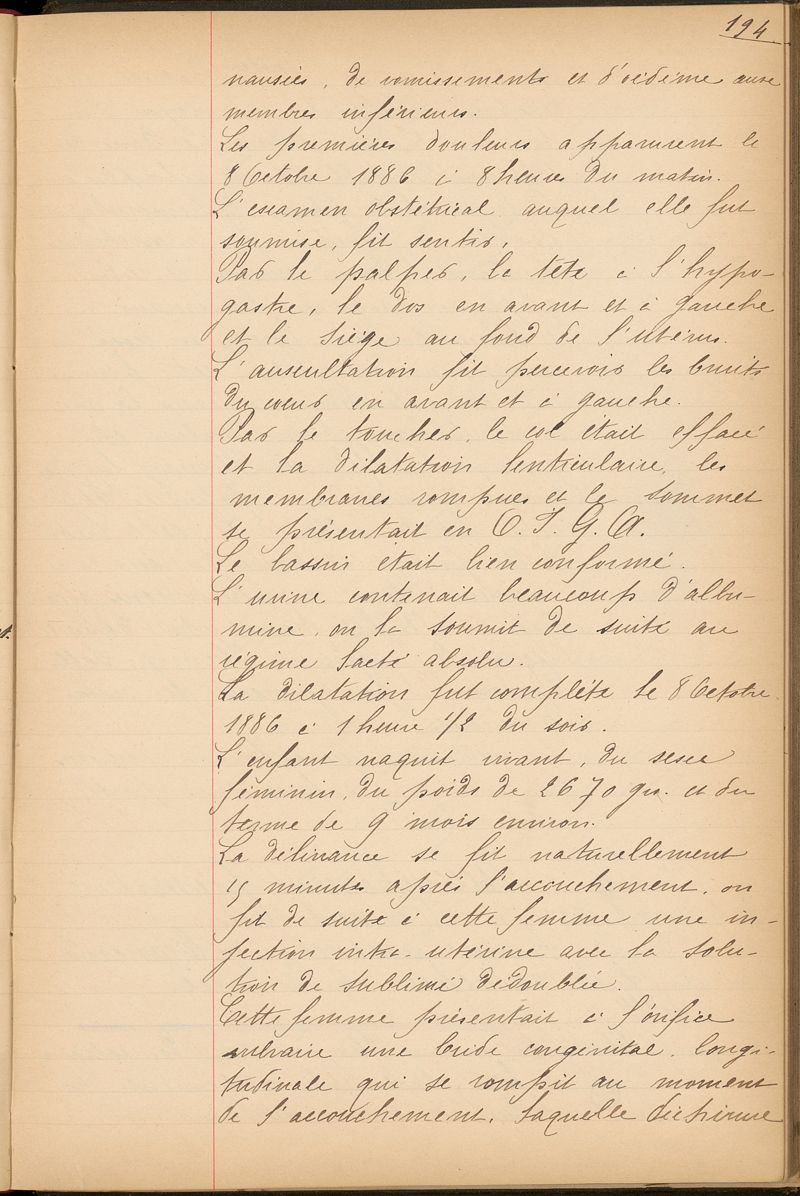 194
nausées, de vomissements et d'oedème aux
membres inférieurs.
Les premières douleurs apparurent le
8 Octobre 1886 à 8 heures du matin.
L'examen obstétrical auquel elle fut
soumise, fit sentir,
Par le palper, la tête à l'hypo-
gastre, le dos en avant et à gauche
et le siège au fond de l'utérus.
L'auscultation fit percevoir les bruits
du coeur en avant et à gauche.
Par le toucher, le col était effacé
et la dilatation lenticulaire, les
membranes rompues et le sommet
se présentait en O. I. G. A.
Le bassin était bien conformé.
L'urine contenait beaucoup d'albu-
mine, on la soumit de suite au
régime lacté absolu.
La dilatation fut complète le 8 Octobre
1886 à 1 heure 1/2 du soir.
L'enfant naquit vivant, du sexe
féminin, du poids de 2670 grs. et du
terme de 9 mois environ.
La délivrance se fit naturellement
15 minutes après l'accouchement, on
fit de suite à cette femme une in-
jection intra-utérine avec la solu-
tion de sublimé dédoublée.
Cette femme présentait à l'orifice
vulvaire une bride congénital, longi-
tudinale qui se rompit au moment
de l'accouchement, laquelle déchirure